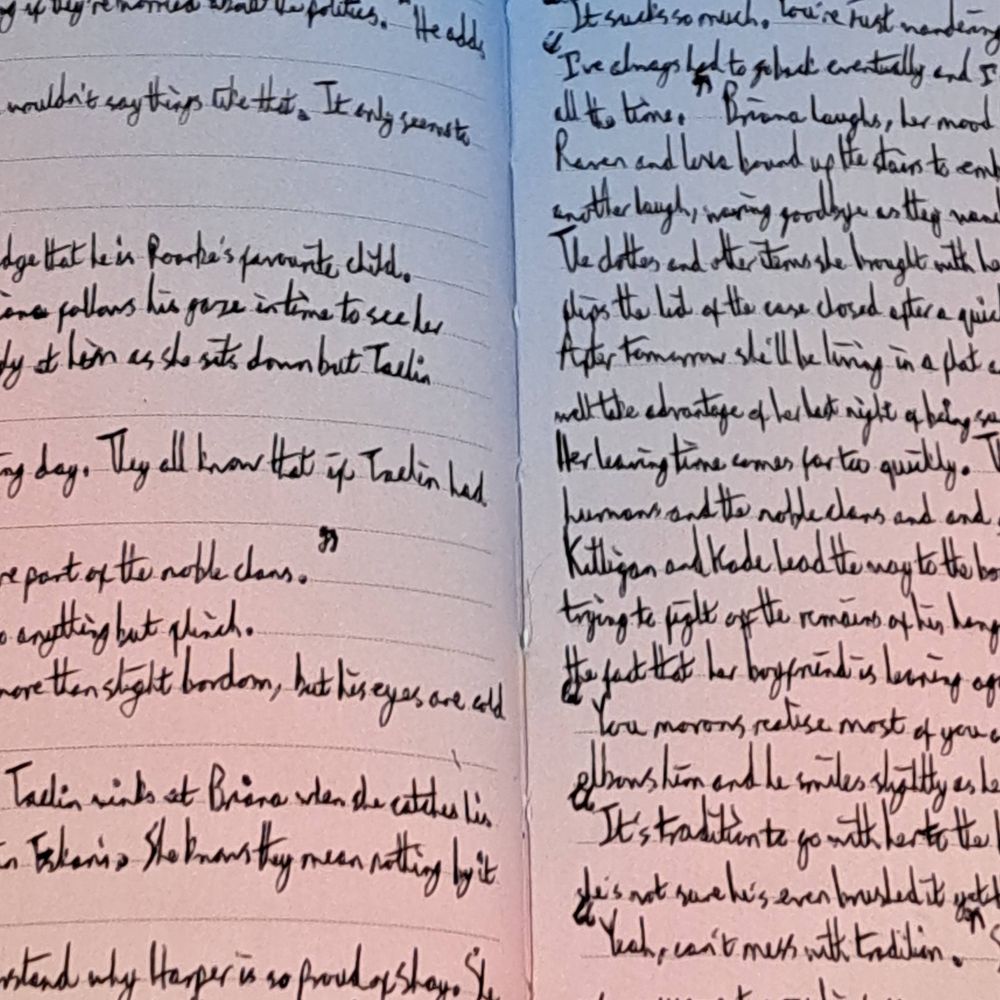 they're worried about the politics." He adds
wouldn't say things like that. It only seems to
that he is Roarke's favourite child.
follows his gaze in time to see her
at him as she sits down but Taelin
day. They all know that if Taelin had
part of the noble clans."
anything but flinch.
more than slight bordom, but his eyes are cold
Taelin winks at Briana when she catches his
She knows they mean nothing by it
why Harper is so proud of
"It sucks so much. You're just wandering
"I've always had to go back eventually and I
all the time." Briana laughs, her mood
Raven and bound up the stairs to
another laugh, waving goodbye as they
The clothes and other items she brought with
flips the lid of the case closed after a
After tomorrow she'll be living in a flat
well take advantage of her last night of being
Her leaving time comes far too quickly.
humans and the noble clans and and
Killigan and Kade lead the way to the
trying to fight off the remains of his
the fact that her boyfriend is leaving
"You morons realise most of you
elbows him and he smiles slightly as
"It's tradition to go with her to the
he's not sure he's even brushed it yet
"Yeah, can't mess with tradition."